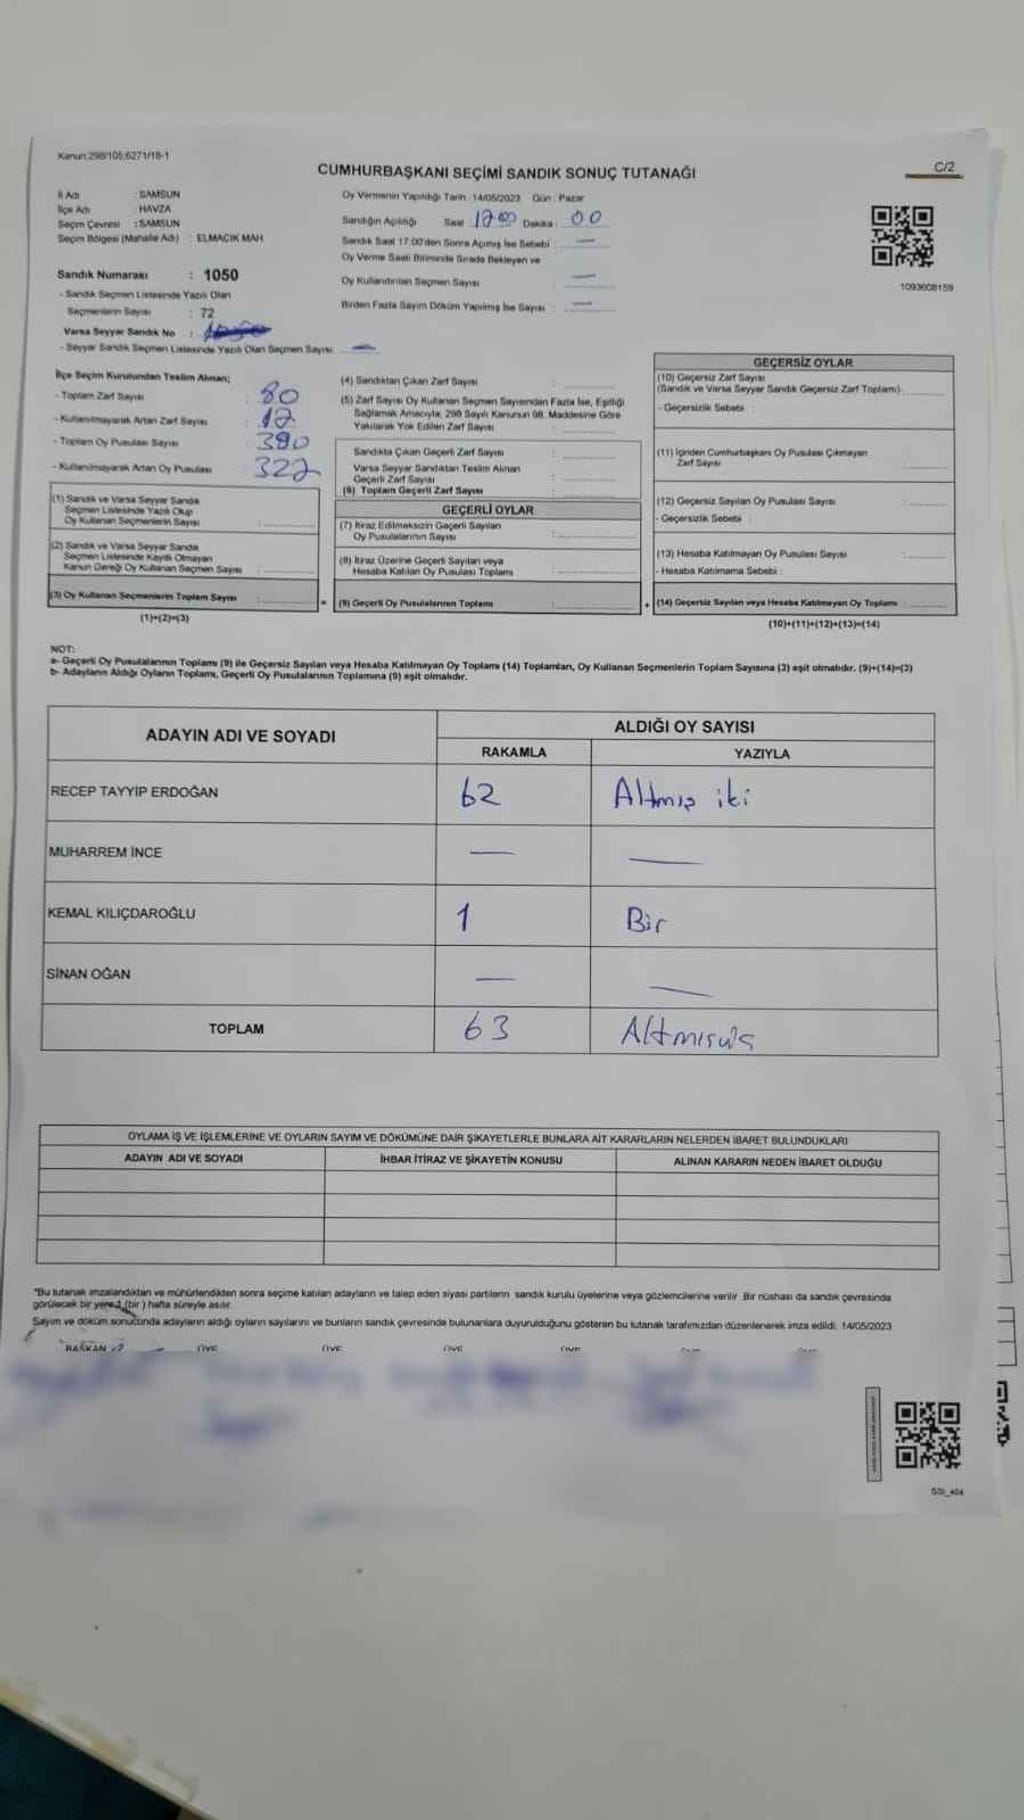 Kanun:298/105;6271/18-1
CUMHURBAŞKANI SEÇİMİ SANDIK SONUÇ TUTANAĞI
C/2
İl Adı : SAMSUN
İlçe Adı : HAVZA
Seçim Çevresi : SAMSUN
Seçim Bölgesi (Mahalle Adı) : ELMACIK MAH
Sandık Numarası : 1050
- Sandık Seçmen Listesinde Yazılı Olan
Seçmenlerin Sayısı : 72
Varsa Seyyar Sandık No :
- Seyyar Sandık Seçmen Listesinde Yazılı Olan Seçmen Sayısı: —
Oy Vermenin Yapıldığı Tarih : 14/05/2023 Gün : Pazar
Sandığın Açıldığı Saat Dakika : 00
Sandık Saat 17:00'den Sonra Açılmış İse Sebebi : —
Oy Verme Saati Bitiminde Sırada Bekleyen ve
Oy Kullandırılan Seçmen Sayısı : —
Birden Fazla Sayım Döküm Yapılmış İse Sayısı : —
1093608159
İlçe Seçim Kurulundan Teslim Alınan;
- Toplam Zarf Sayısı : 80
- Kullanılmayarak Artan Zarf Sayısı : 12
- Toplam Oy Pusulası Sayısı : 380
- Kullanılmayarak Artan Oy Pusulası : 322
(1) Sandık ve Varsa Seyyar Sandık
Seçmen Listesinde Yazılı Olup
Oy Kullanan Seçmenlerin Sayısı :
(2) Sandık ve Varsa Seyyar Sandık
Seçmen Listesinde Kayıtlı Olmayan
Kanun Gereği Oy Kullanan Seçmen Sayısı :
(3) Oy Kullanan Seçmenlerin Toplam Sayısı :
(1)+(2)=(3)
(4) Sandıktan Çıkan Zarf Sayısı :
(5) Zarf Sayısı Oy Kullanan Seçmen Sayısından Fazla İse, Eşitliği
Sağlamak Amacıyla, 298 Sayılı Kanunun 98. Maddesine Göre
Yakılarak Yok Edilen Zarf Sayısı :
Sandıkta Çıkan Geçerli Zarf Sayısı :
Varsa Seyyar Sandıktan Teslim Alınan
Geçerli Zarf Sayısı :
(6) Toplam Geçerli Zarf Sayısı :
GEÇERLİ OYLAR
(7) İtiraz Edilmeksizin Geçerli Sayılan
Oy Pusulalarının Sayısı :
(8) İtiraz Üzerine Geçerli Sayılan veya
Hesaba Katılan Oy Pusulası Toplamı :
= (9) Geçerli Oy Pusulalarının Toplamı :
GEÇERSİZ OYLAR
(10) Geçersiz Zarf Sayısı
(Sandık ve Varsa Seyyar Sandık Geçersiz Zarf Toplamı) :
- Geçersizlik Sebebi :
(11) İçinden Cumhurbaşkanı Oy Pusulası Çıkmayan
Zarf Sayısı :
(12) Geçersiz Sayılan Oy Pusulası Sayısı :
- Geçersizlik Sebebi :
(13) Hesaba Katılmayan Oy Pusulası Sayısı :
- Hesaba Katılmama Sebebi :
+ (14) Geçersiz Sayılan veya Hesaba Katılmayan Oy Toplamı :
(10)+(11)+(12)+(13)=(14)
NOT:
a- Geçerli Oy Pusulalarının Toplamı (9) ile Geçersiz Sayılan veya Hesaba Katılmayan Oy Toplamı (14) Toplamları, Oy Kullanan Seçmenlerin Toplam Sayısına (3) eşit olmalıdır. (9)+(14)=(3)
b- Adayların Aldığı Oyların Toplamı, Geçerli Oy Pusulalarının Toplamına (9) eşit olmalıdır.
ADAYIN ADI VE SOYADI ALDIĞI OY SAYISI
RAKAMLA YAZIYLA
RECEP TAYYİP ERDOĞAN 62 Altmış iki
MUHARREM İNCE — —
KEMAL KILIÇDAROĞLU 1 Bir
SİNAN OĞAN — —
TOPLAM 63
OYLAMA İŞ VE İŞLEMLERİNE VE OYLARIN SAYIM VE DÖKÜMÜNE DAİR ŞİKAYETLERLE BUNLARA AİT KARARLARIN NELERDEN İBARET BULUNDUKLARI
ADAYIN ADI VE SOYADI İHBAR İTİRAZ VE ŞİKAYETİN KONUSU ALINAN KARARIN NEDEN İBARET OLDUĞU
*Bu tutanak imzalandıktan ve mühürlendikten sonra seçime katılan adayların ve talep eden siyasi partilerin sandık kurulu üyelerine veya gözlemcilerine verilir. Bir nüshası da sandık çevresinde
görülecek bir yere 1 (bir ) hafta süreyle asılır.
Sayım ve döküm sonucunda adayların aldığı oyların sayılarını ve bunların sandık çevresinde bulunanlara duyurulduğunu gösteren bu tutanak tarafımızdan düzenlenerek imza edildi. 14/05/2023
BAŞKAN ÜYE ÜYE ÜYE ÜYE